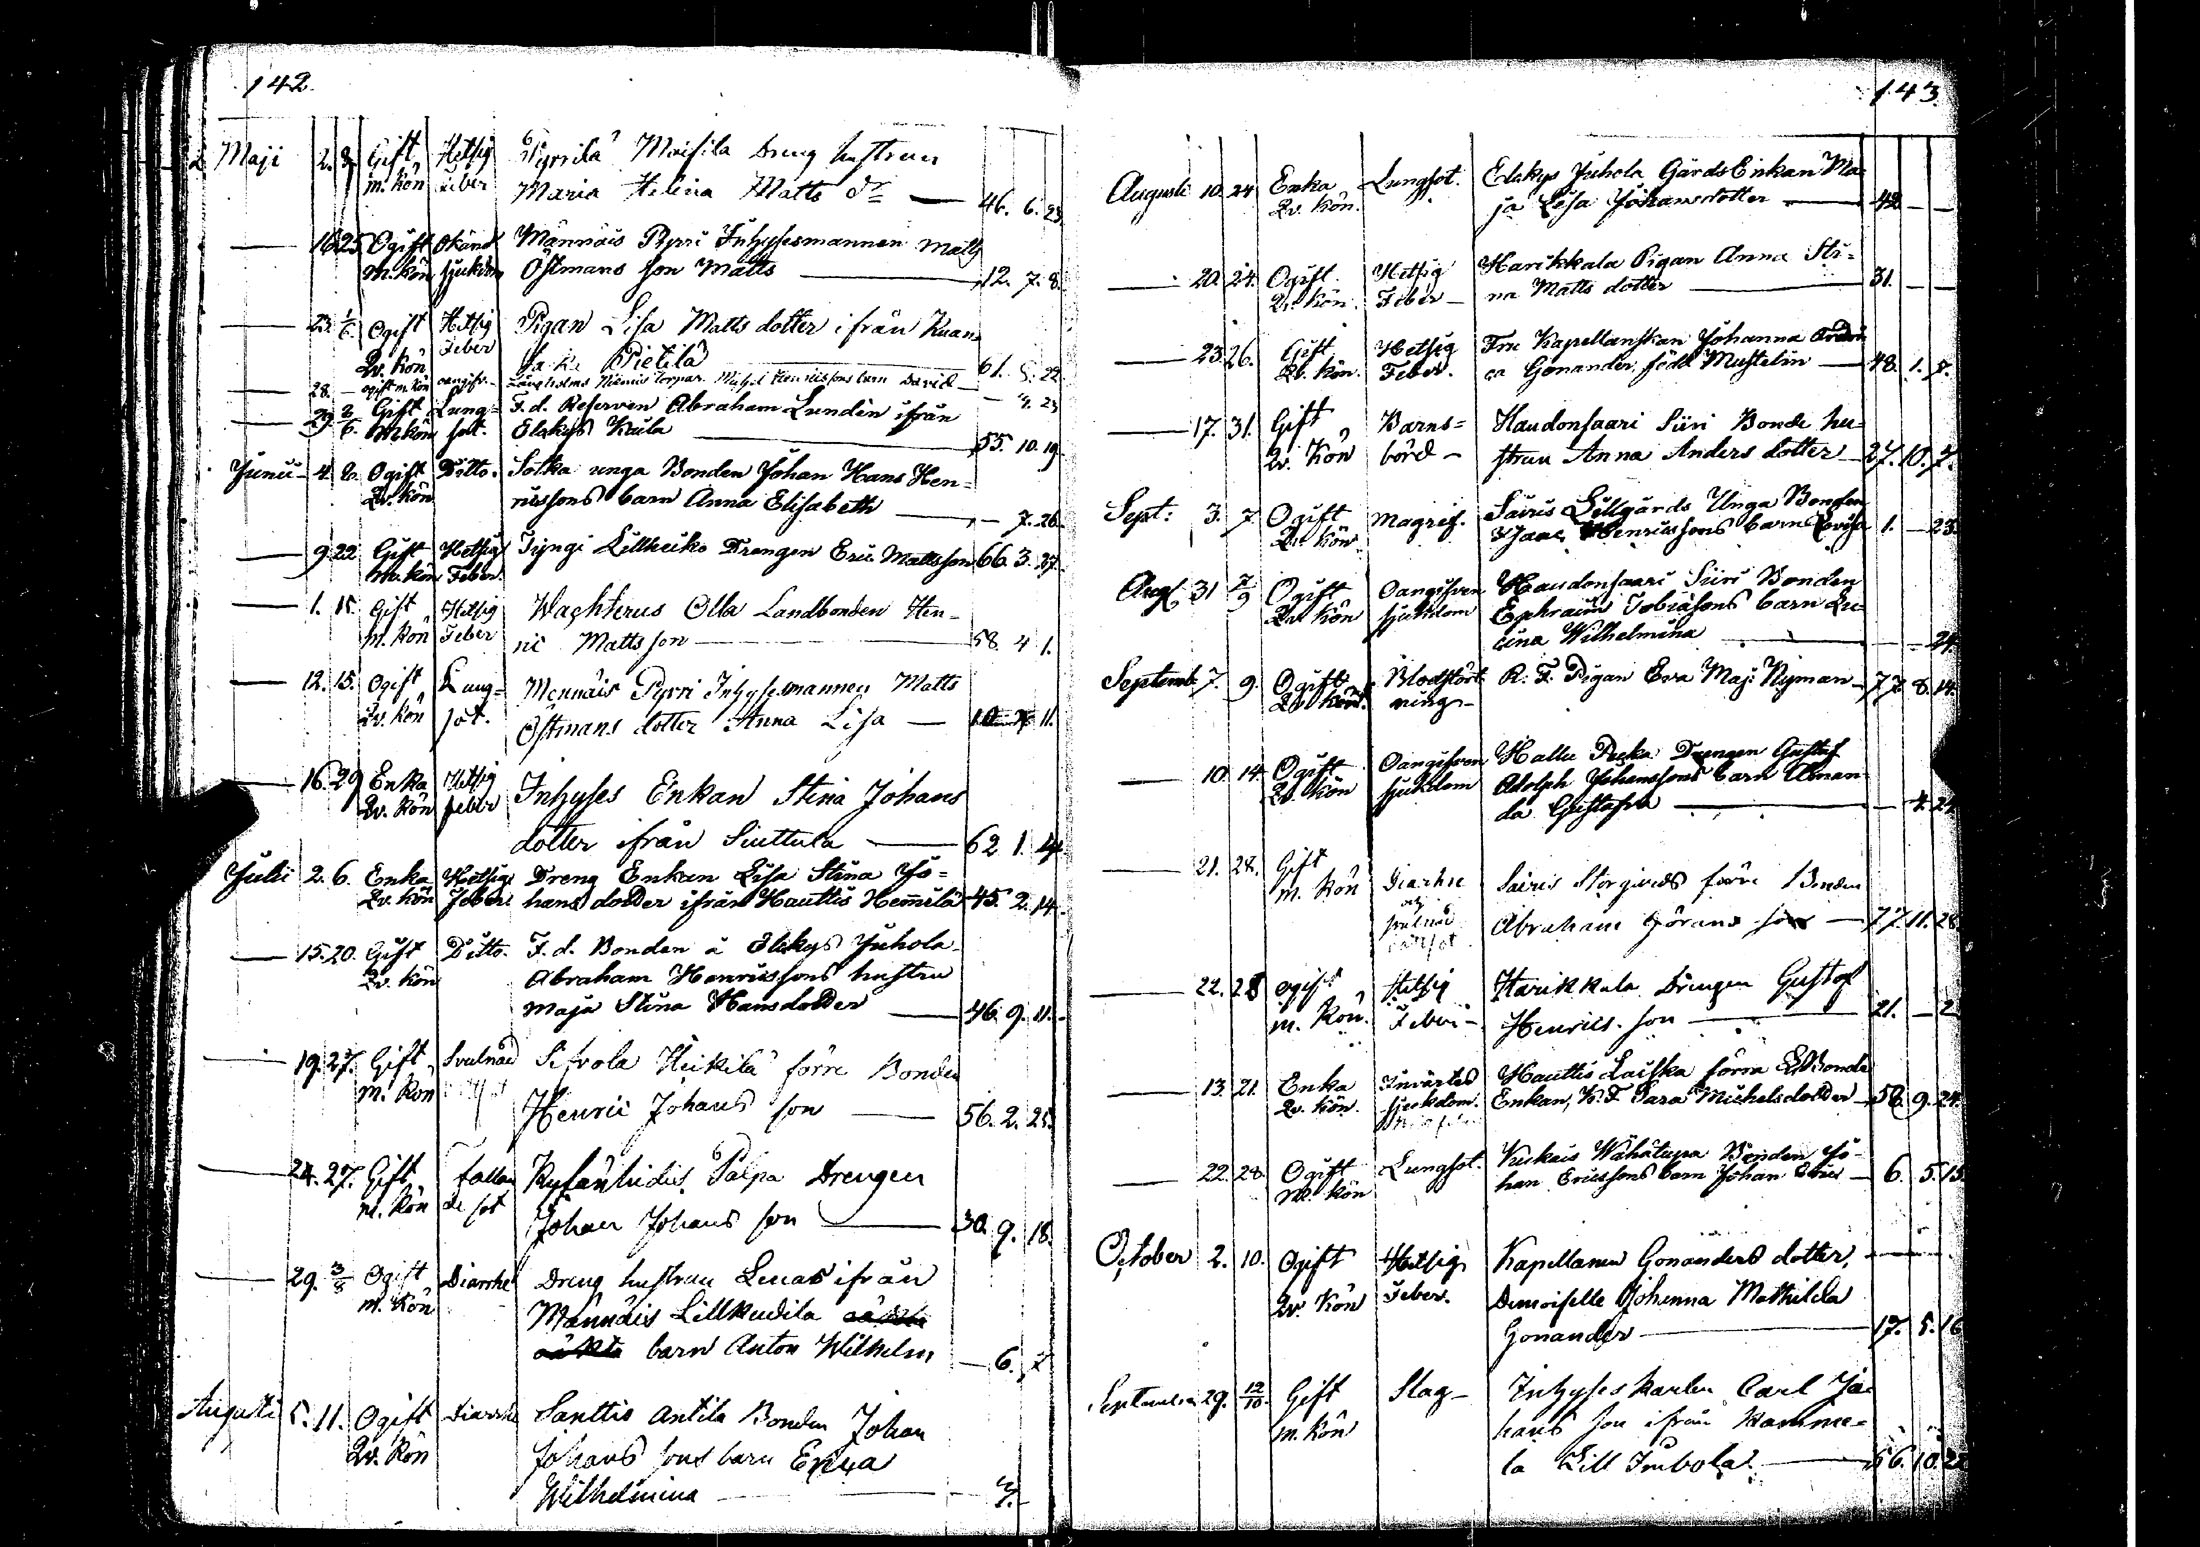 142.
Maji 2. 8. Gift Hetsig Pyrrilä Moisila Dreng hustrun
m. Kön feber Maria Helena Matts dr — 46. 6. 23
— 16 25 Ogift Okänd Männäis Pyrri Inhysesmannen Matts
m. Kön sjukdom Östmans son Matts — 12. 7. 8.
— 23. 1/6. Ogift Hetsig Pigan Lisa Matts dotter ifrån
Qv. Kön Feber Pietilä — 61. 5. 22.
28. — ogift m. Kön oangifv. Niemis Torpar. Michel Henricssons barn David — 23
— 29. 8/6. Gift Lung= F. d. Reserven Abraham Lundén ifrån
m. Kön sot. Elekys Kaila — 55. 10. 19.
Junii 4. 8. Ogift Ditto. Sotka unga Bonden Johan Hans Hen=
Qv. Kön ricssons barn Anna Elisabeth — 7. 26.
— 9. 22 Gift Hetsig Tyngi Lillheiko Drengen Eric Mattsson 66. 3. 27.
m. Kön Feber.
— 1. 15. Gift Hetsig Wachterus Olla Landbonden Hen=
m. Kön Feber ric Matts son — 58. 4 1.
— 12. 15. Ogift Lung= Mennäis Pyrri Inhysesmannen Matts
Qv. Kön sot. Östmans dotter Anna Lisa — 10 11.
— 16. 29 Enka Hetsig Inhyses Enkan Stina Johans
Qv. Kön feber
dotter ifrån Siuttula — 62 1. 14.
Julii 2. 6. Enka Hetsig Dreng Enkan Lisa Stina Jo=
Qv. Kön Feber. hans dotter ifrån Hauttis Hemmilä — 45. 2. 14.
— 15. 20. Gift Ditto. F. d. Bonden å Elekys Juhola
Qv. Kön Abraham Henricssons hustru
Maja Stina Hansdotter — 46. 9. 11.
— 19. 27. Gift Svulnad Heikilä förre Bonden
m. Kön
Henric Johans son — 56. 2. 25.
— 24. 27. Gift fallan Palpa Drengen
m. Kön de sot Johan Johans son — 30. 9. 18.
— 29. 3/8 Ogift Diarrhe Dreng hustrun Lenas ifrån
m. Kön Männäis Lillkudila
barn Anton Wilhelm — 6. 7
Augusti 5. 11. Ogift Diarrhe Santtis Antila Bonden Johan
Qv. Kön Johans sons barn Erica
Wilhelmina —
143
Augusti 10. 24 Enka Lungsot. Elekys Juhola Gårds Enkan Ma=
Qv. Kön. ja Lisa Johansdotter — 42 — —
— 20. 24. Ogift Hetsig Harikkala Pigan Anna Sti=
Qv. Kön. Feber — na Matts dotter — 31. — —
— 23. 26. Gift Hetsig Fru Kapellanskan Johanna
Qv. Kön. Feber. ca Gonander född Mustelin — 48. 1. 8.
— 17. 31. Gift Barns= Haudonsaari Siiri Bonde hu=
Qv. Kön börd — strun Anna Anders dotter — 27. 10. 7.
Sept: 3. 7. Ogift Magref. Säiris Lillgårds Unga Bonden
Qv. Kön Isaac Henricssons barn Lovisa 1. — 23.
Aug. 31 7/9 Ogift Oangifven Haudonsaari Siiri Bonden
Qv. Kön sjukdom Ephraim Tobiasons barn Lu=
cina Wilhelmina — 24.
Septemb 7. 9. Ogift Blodstört R. F. Pigan Eva Maj: Nyman — 77 8. 14.
Qv. Kön. ning —
— 10. 14. Ogift Oangifven Hallu Pecka Drengen Gustaf
Qv. Kön sjukdom Adolph Johanssons barn Aman
da Gustafva —
— 21. 28. Gift Diarhe Säiris Storgårds förre Bonden
m. Kön svulnad
Abraham Görans son — 77. 11. 28.
— 22. 28 Ogift Hetsig Harikkala Drengen Gustaf
m. Kön. Feber — Henrics son — 21. — 2
— 13. 21. Enka Invärtes Hauttis Laiska förra Bonde
Qv. Kön. sjukdom. Enkan, Sara Michelsdotter — 58. 9. 24.
— 22. 28. Ogift Lungsot. Kukais Wähätupa Bonden Jo=
m. Kön han Ericssons barn Johan Eric — 6. 5. 15.
October 2. 10. Ogift Hetsig Kapellanen Gonanders dotter,
Qv. Kön Feber. Demoiselle Johanna Mathilda
Gonander — 17. 5. 16
September 29. 12/10. Gift Slag — Inhyses karlen Carl Jo=
m. Kön hans son ifrån Kamme=
la Lill — 56. 10. 22